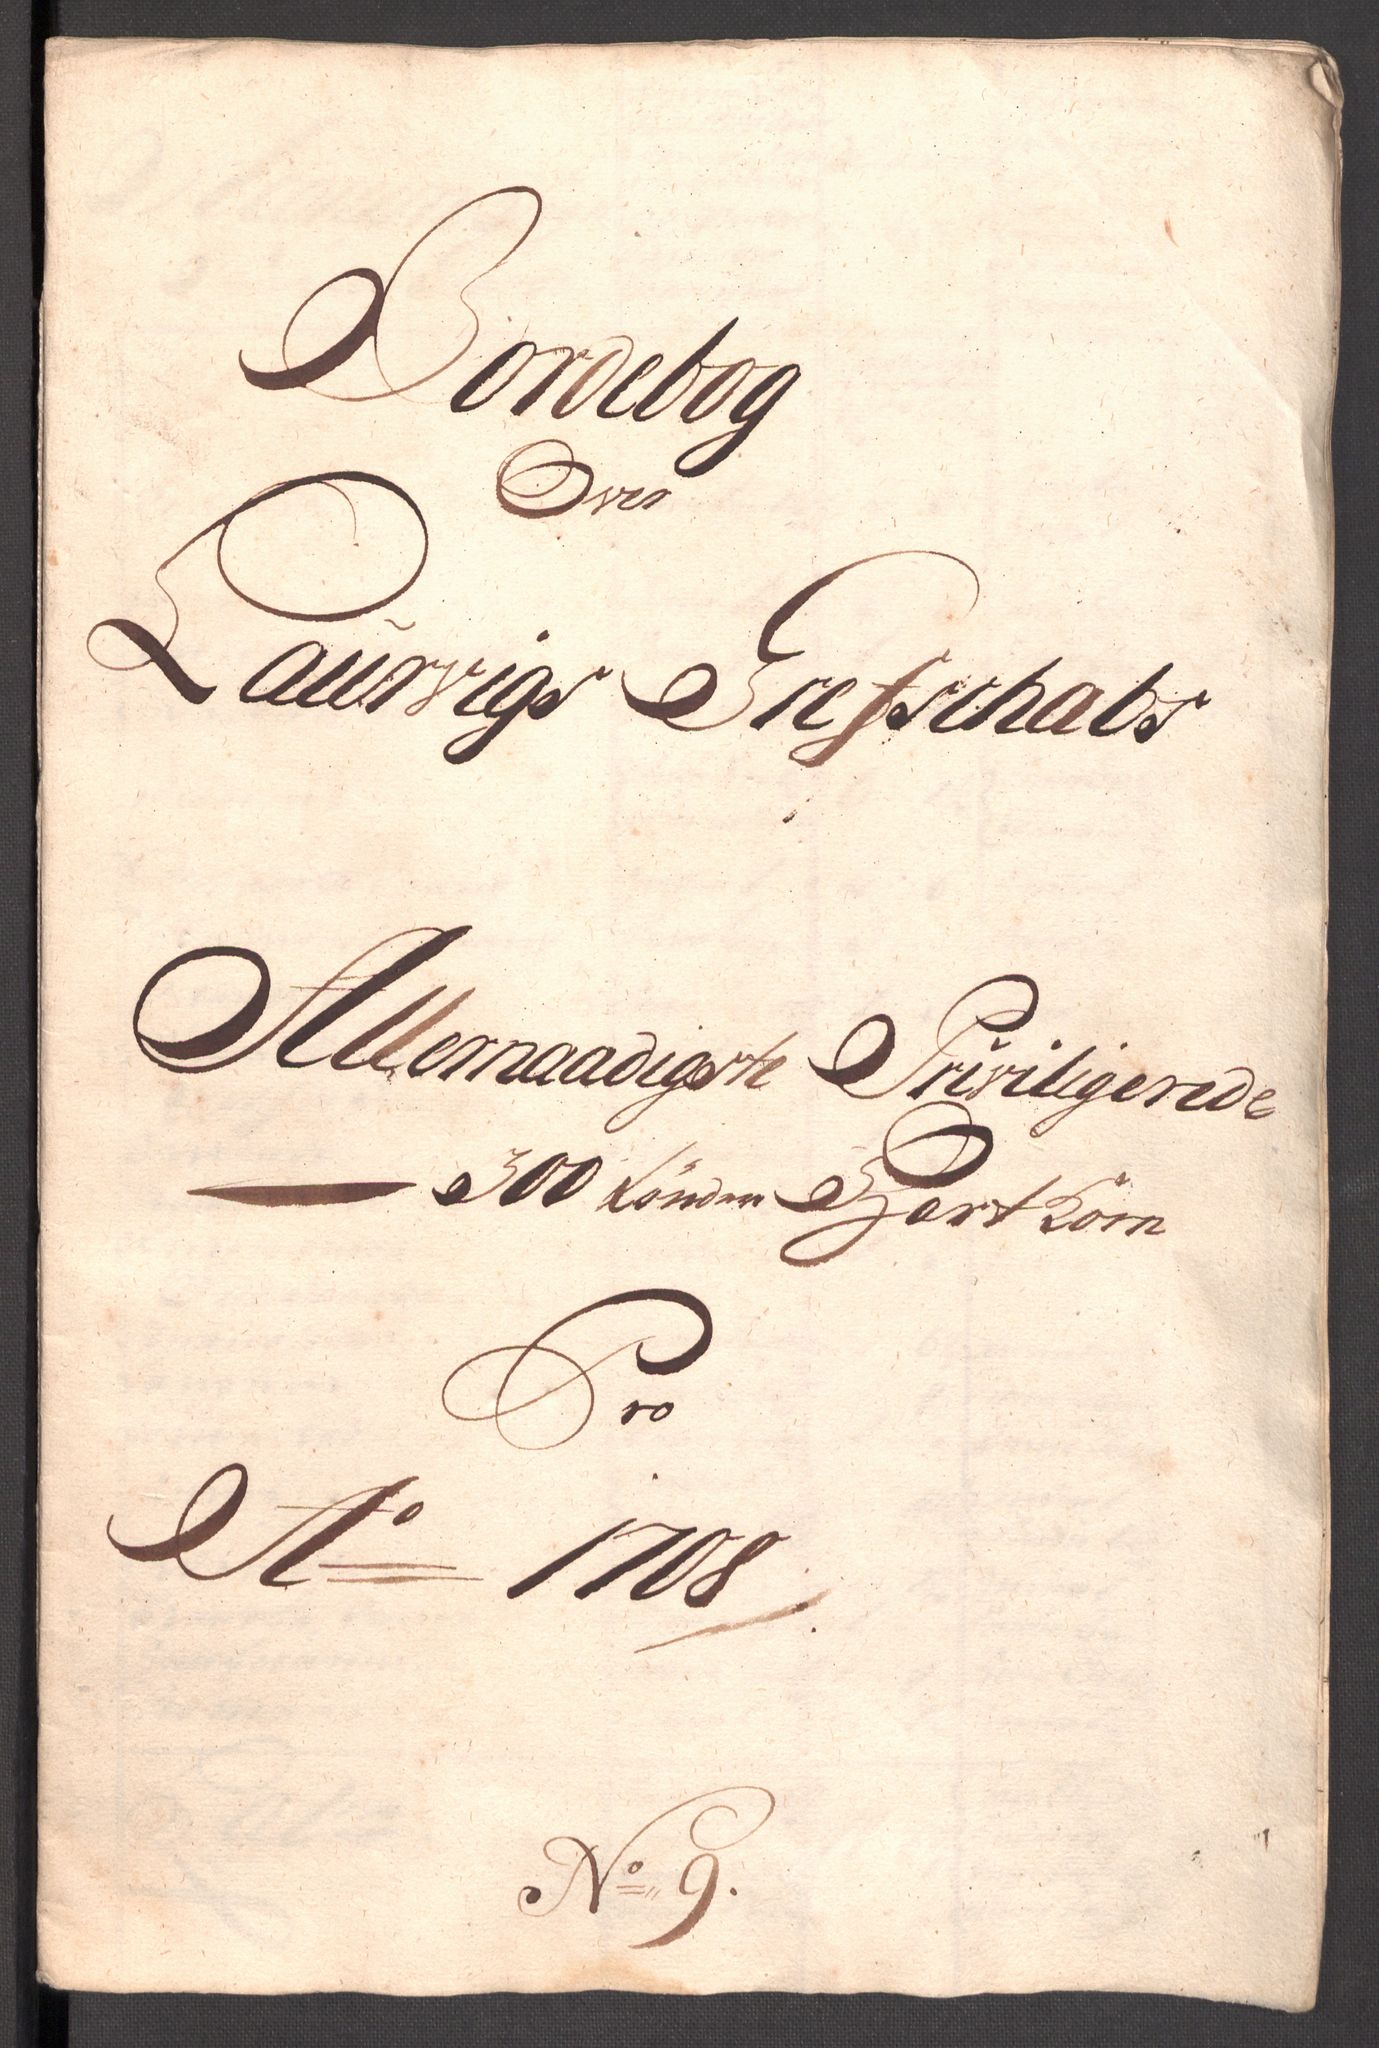 Jordebog
Over
Laurvigs Grefschabs
Allernaadigste Priviligerede
300 tönder Hart Korn
Pro
Ao 1708
No 9.